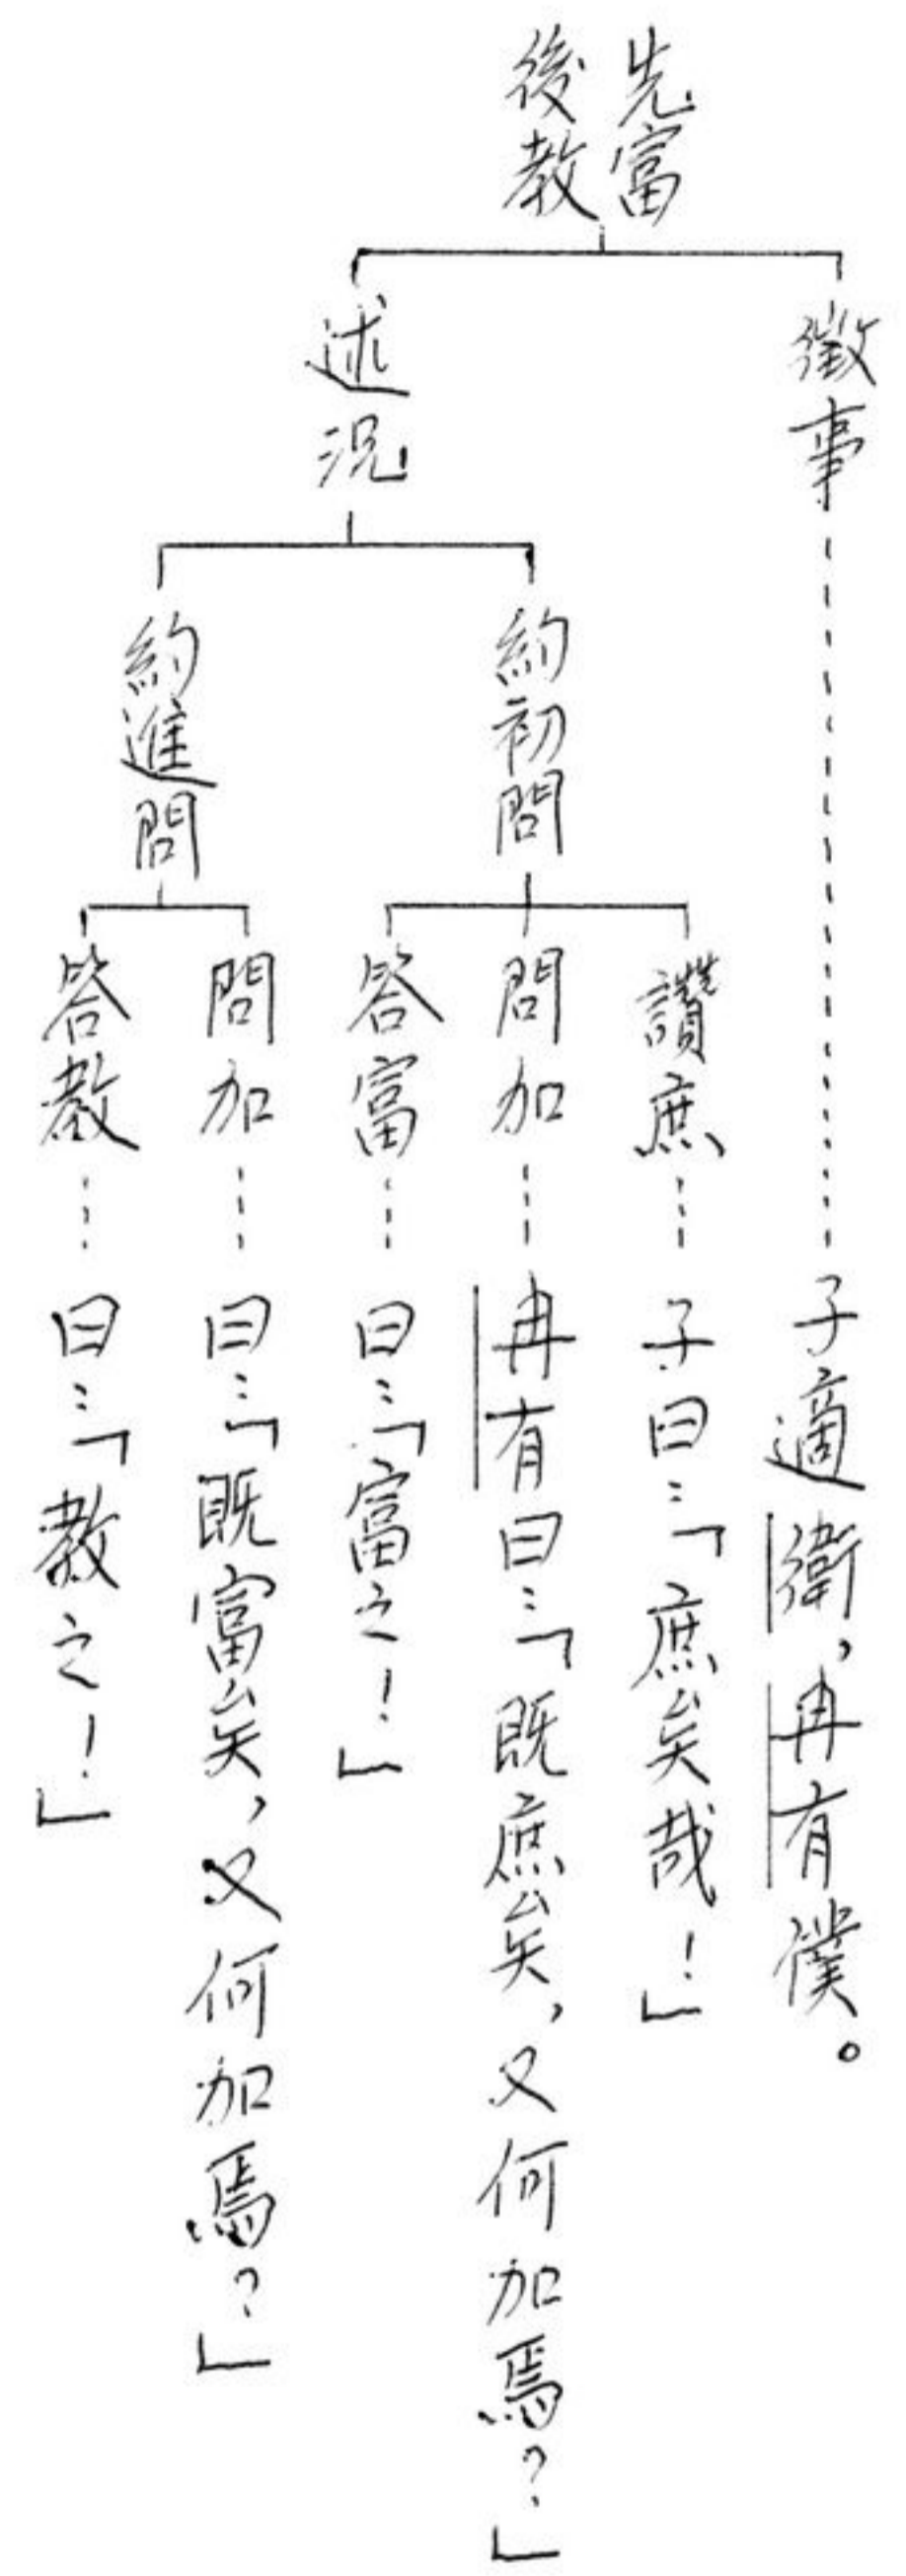 先富
後教
徵事
子適衛,冉有僕。
述況
約初問
讚庶
子曰:「庶矣哉!」
問加
冉有曰:「既庶矣,又何加焉?」
答富
曰:「富之!」
約進問
問加
曰:「既富矣,又何加焉?」
答教
曰:「教之!」